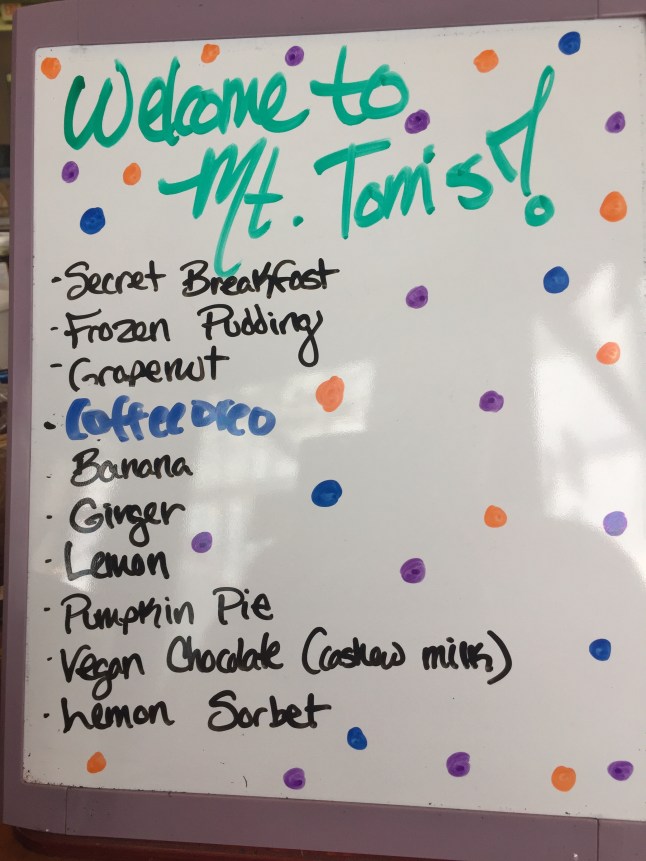 Welcome to
Mt. Tom's!
- Secret Breakfast
- Frozen Pudding
- Grapenut
• Coffee oreo
Banana
· Ginger
· Lemon
· Pumpkin Pie
· Vegan Chocolate (cashew milk)
· Lemon Sorbet